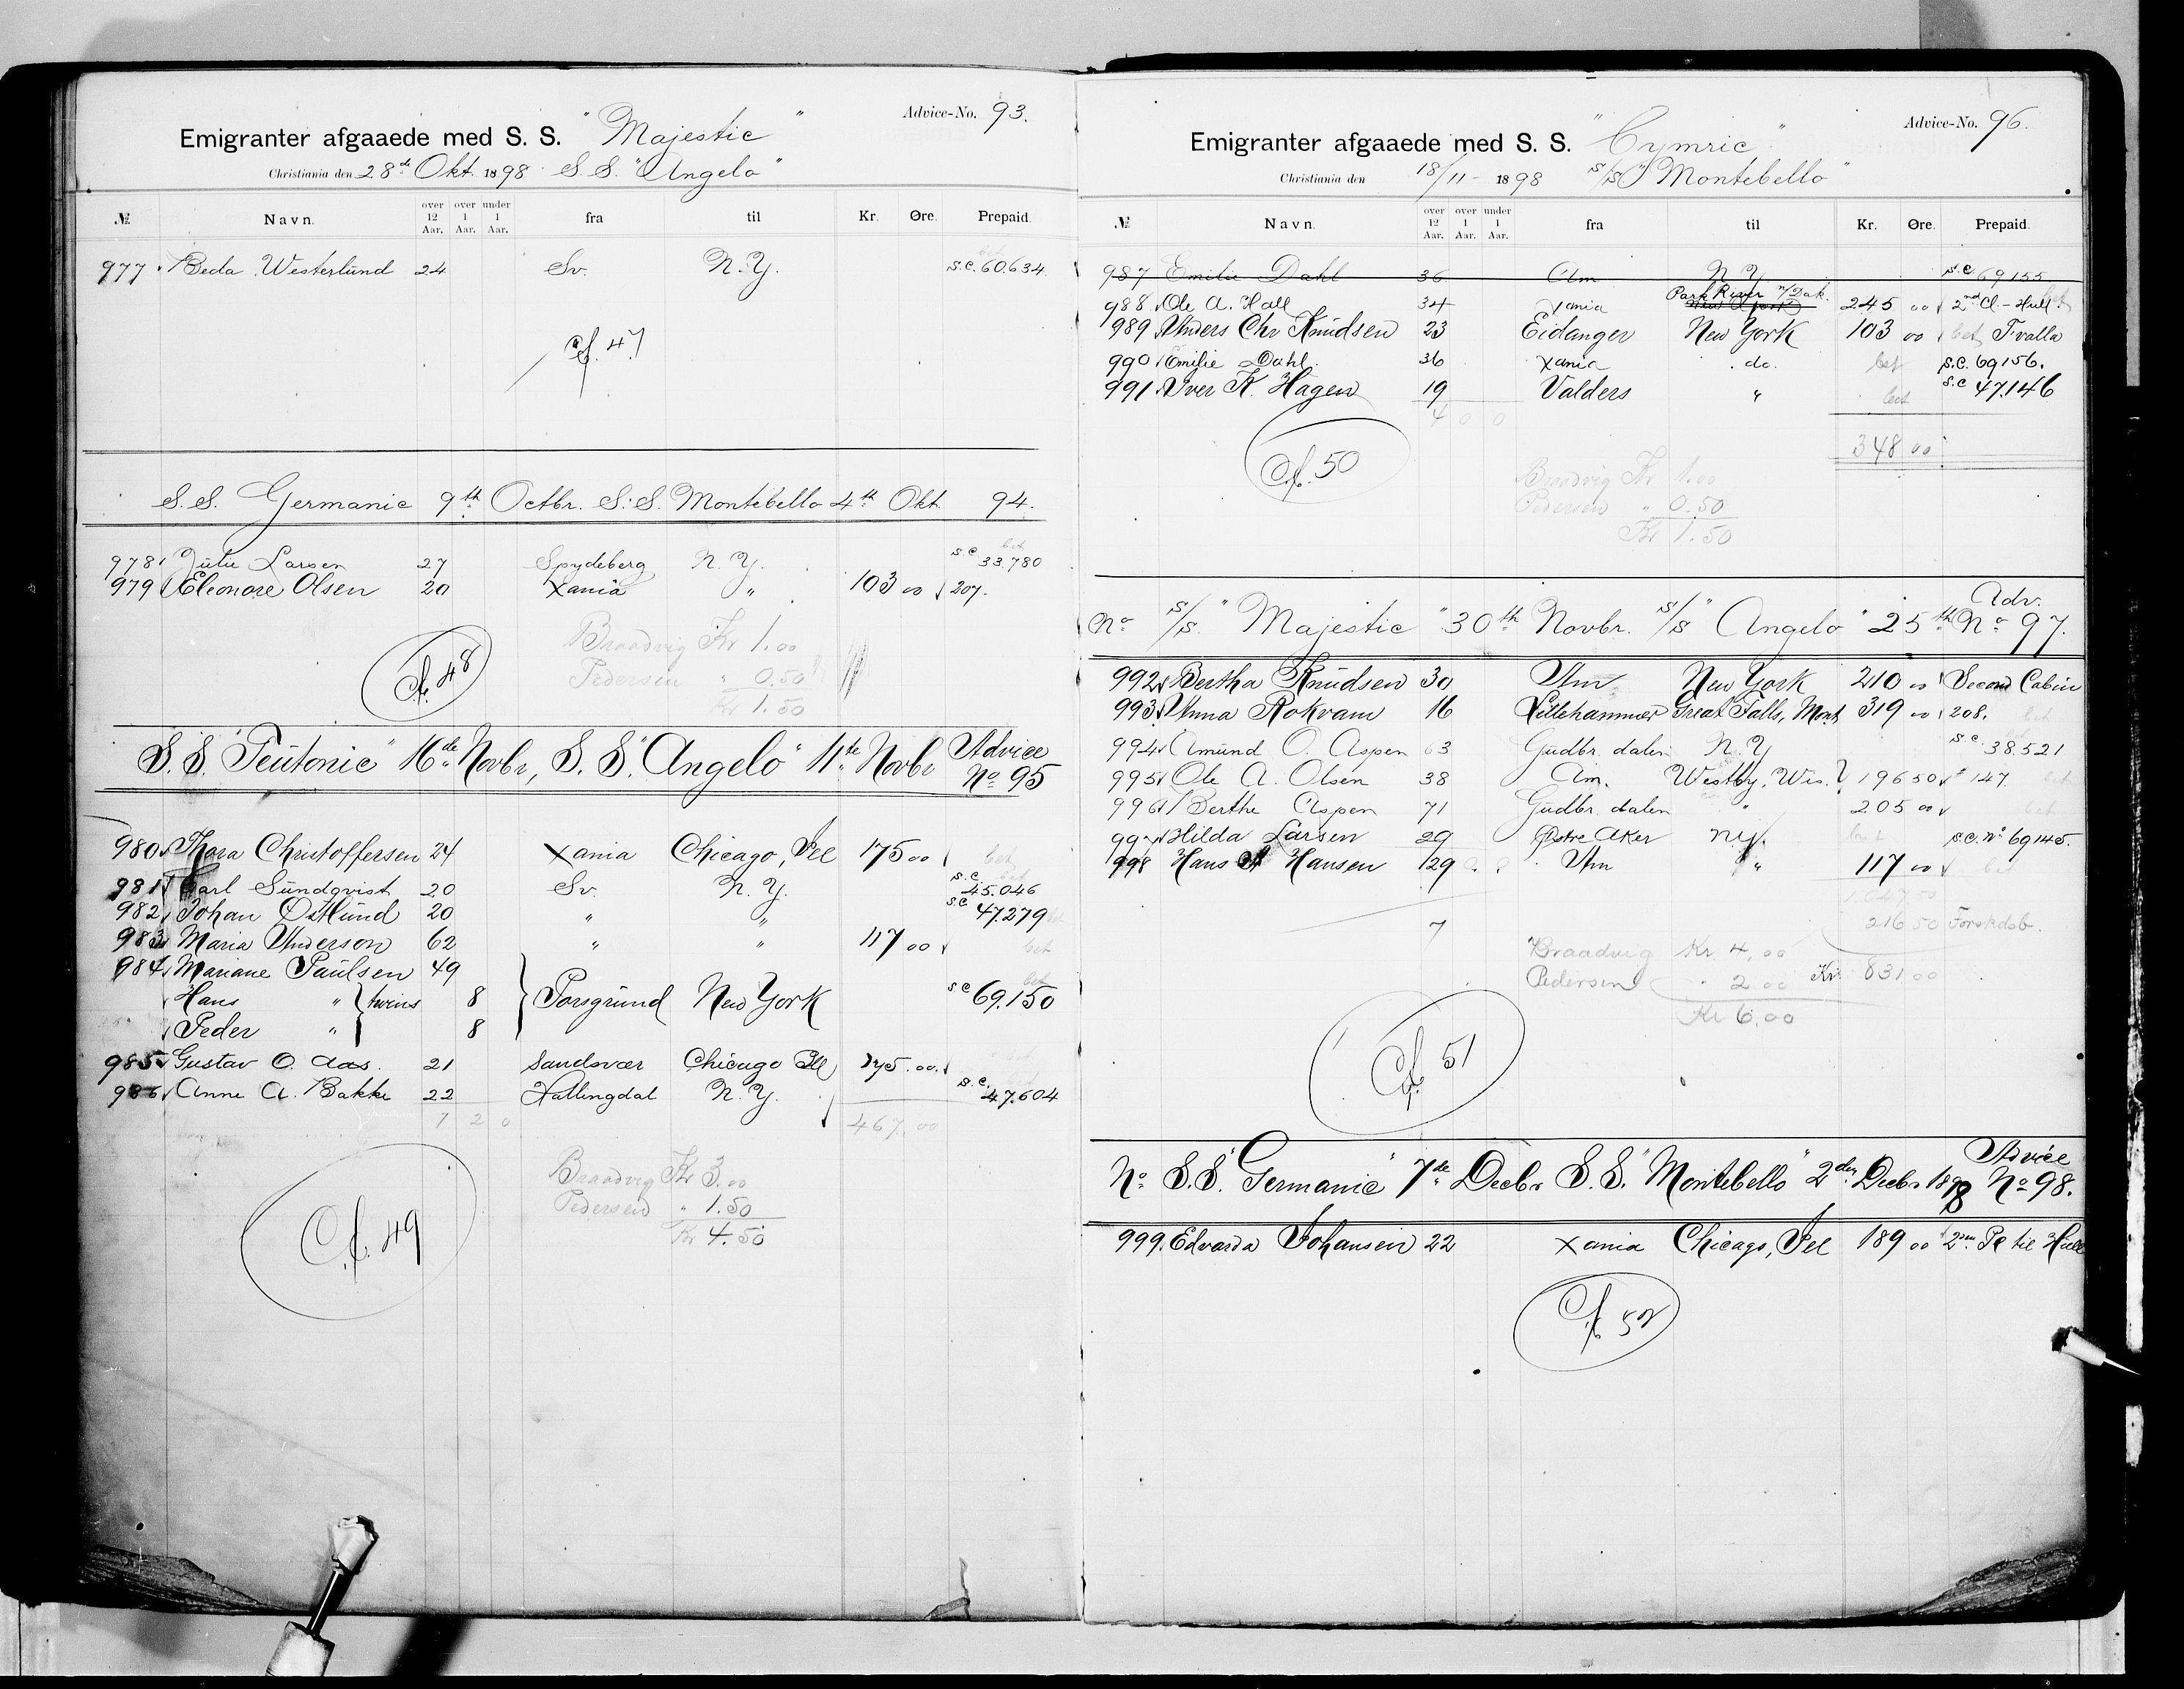 Emigranter afgaaede med S. S. "Majestic" Advice-No. 93.
Christiania den 28de Okt. 1898 S.S. "Angelo"
№ Navn. over 12 Aar. over 1 Aar. under 1 Aar. fra til Kr. Øre. Prepaid.
977 Beda Westerlund 24 Sv. N.Y. bet S.C. 60.634
Cf. 47
S.S. Germanic 9th Octbr. S.S. Montebello 4th Okt 94.
978 Julie Larsen 27 Spydeberg N.Y. bet S.C 33.780
979 Eleonore Olsen 20 Xania " 103 00 207.
Braadvig Kr 1.00
Pedersen " 0.50
Kr 1.50
Cf. 48
S.S. "Teutonic" 16de Novbr, S.S. "Angelo" 11te Novbr Advice No 95
980 Thora Christoffersen 24 Xania Chicago, Ill 175 00 bet
981 Carl Sundqvist 20 Sv. N.Y. S.C. 45.046
982 Johan Östlund 20 " " S.C 47.279 bet
983 Maria Anderson 62 " " 117 00 bet
984 Mariane Paulsen 49
Hans " } twins 8 } Porsgrund New York bet S.C 69.150
Peder " 8
985 Gustav O. Aas. 21 Sandsvær Chicago Ill 175.00. bet
986 Anne A. Bakke 22 Hallingdal N.Y. S.C. 47.604
7 2 0 467.00
Braadvig Kr 3.00
Pedersen " 1.50
Kr 4.50
Cf. 49
Emigranter afgaaede med S. S. "Cymric" Advice-No. 96.
Christiania den 18/11 - 1898 S/S "Montebello"
№ Navn. over 12 Aar. over 1 Aar. under 1 Aar. fra til Kr. Øre. Prepaid.
987 Emilie Dahl 36 Am N.Y S.C 69155
988 Ole A. Hall 34 Xania Park River N/Dak. 245 00 2nd Cl - Hull. bet
989 Anders Chr Knudsen 23 Eidanger New York 103 00 bet Tvalla
990 Emilie Dahl. 36 Xania do. bet S.C. 69156.
991 Iver K. Hagen 19 Valders " bet S.C 47.146
4 0 0
348 00
Cf. 50
Braadvig Kr 1.00
Pedersen " 0.50
Kr 1.50
No S/S. "Majestic" 30th Novbr. S/S "Angelo" 25th Adv. No 97.
992 Bertha Knudsen 30 Am New York 210 00 Second Cabin
993 Anna Rokvam 16 Lillehammer Great Falls, Mont 319 00 208. bet
994 Amund O. Aspen 63 Gudbr. dalen N.Y S.C. 38.521
995 Ole A. Olsen 38 Am. Westby, Wis. 196 50 # 147. bet
996 Berthe Aspen 71 Gudbr. dalen " 205 00 bet
997 Hilda Larsen 29 Østre Aker N.Y. bet S.C. No 69145.
998 Hans A Hansen 29 Am " 117 00 bet
1.047 50
7 216 50 Forskdsb.
Braadvig Kr 4,00
Kr 831 00
Pedersen " 2.00
Kr 6,00
Cf. 51
No S.S. "Germanic" 7de Decbr S.S. "Montebello" 2den Decbr 1898 Advice No 98.
999. Edvarda Johansen 22 Xania Chicago, Ill 189 00 2den Pl til Hull
Cf. 52